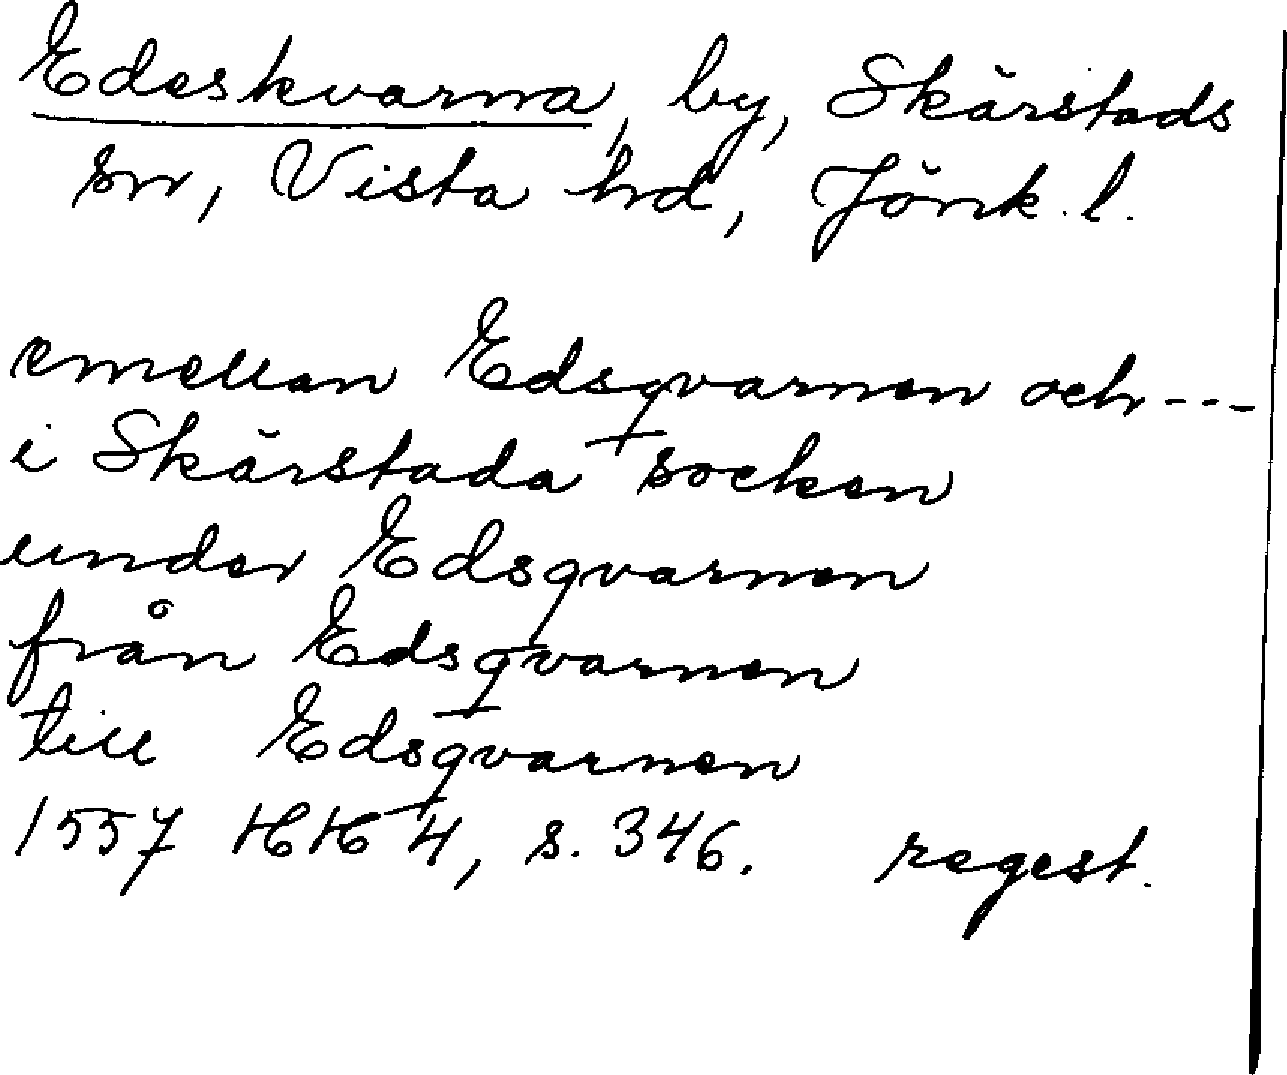 Edeskvarna, by, Skärstads
sn, Vista hd, Jönk. l.
emellan Edsqvarnen och ---
i Skärstada socken
under Edsqvarnen
från Edsqvarnen
till Edsqvarnen
1557 HH 4, s. 346. regest.